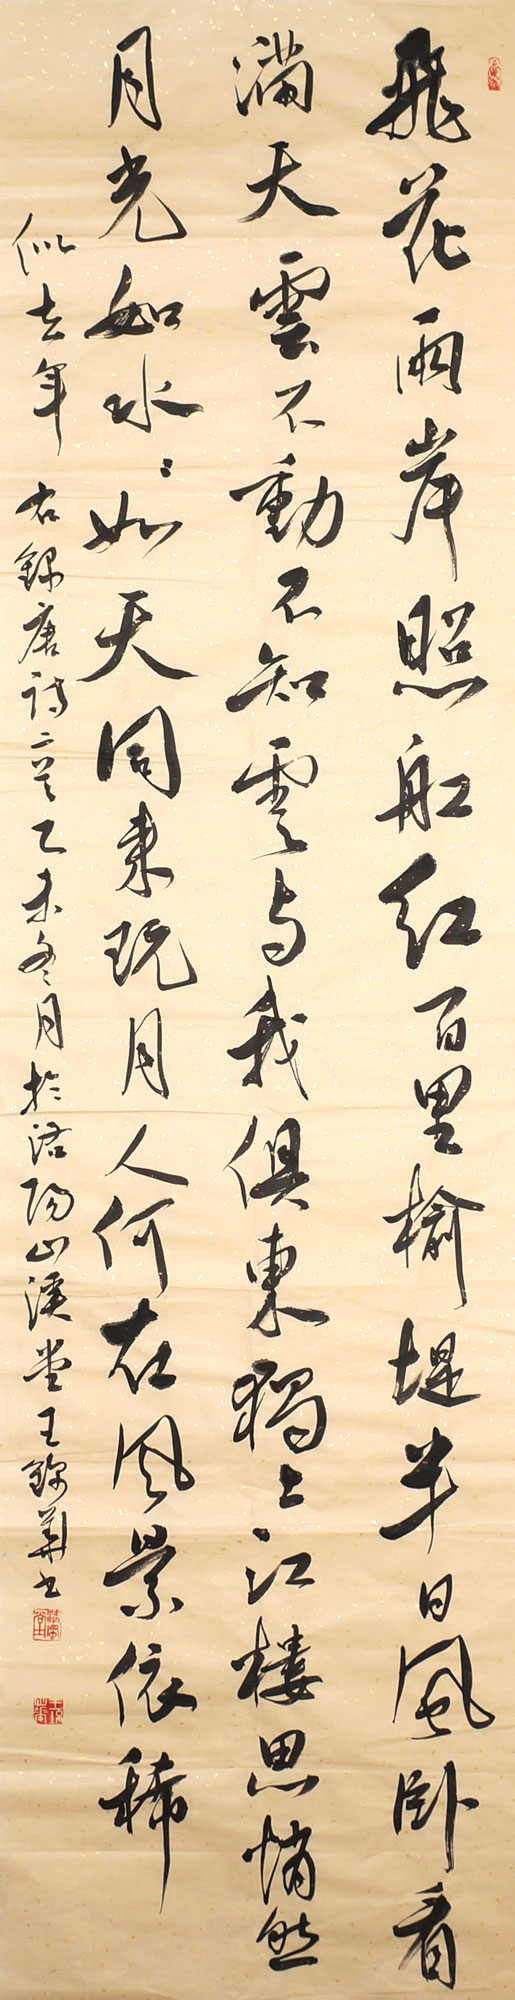 飛花兩岸照船紅百里榆堤半日風臥看
滿天雲不動不知雲與我俱東獨上江樓思悄然
月光如水水如天同來玩月人何在風景依稀
似去年 右錄唐詩二首乙未冬月於洛陽山溪堂王錦華書